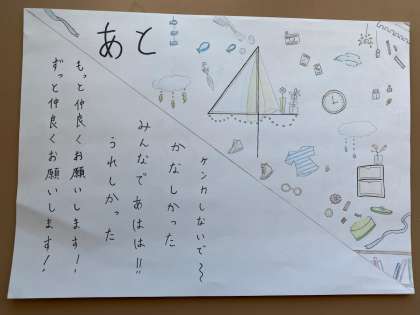 あと
ケンカしないで〜
かなしかった
みんなであはは!!
うれしかった
もっと仲良くお願いします!
ずっと仲良くお願いします!